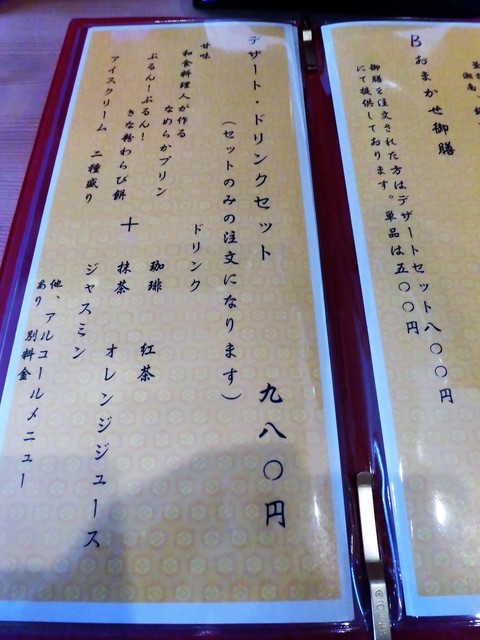 B おまかせ御膳
御膳を注文された方はデザートセット八〇〇円
にて提供しております。単品は五〇〇円
デザート・ドリンクセット 九八〇円
(セットのみの注文になります)
甘味
和食料理人が作る
なめらかプリン
ぷるん!ぷるん!
きな粉わらび餅
アイスクリーム 二種盛り
+
ドリンク
珈琲 紅茶
抹茶 オレンジジュース
ジャスミン
他、アルコールメニュー
あり 別料金